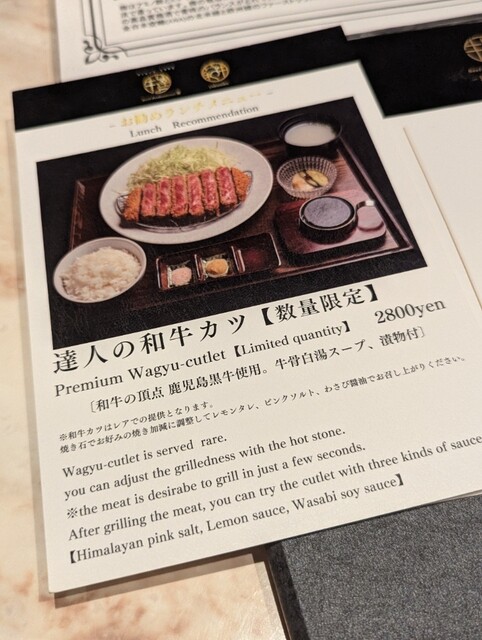 お勧めランチメニュー
Lunch Recommendation
達人の和牛カツ【数量限定】
Premium Wagyu-cutlet【Limited quantity】 2800yen
［和牛の頂点 鹿児島黒牛使用。牛骨白湯スープ、漬物付］
※和牛カツはレアでの提供となります。
焼き石でお好みの焼き加減に調整してレモンタレ、ピンクソルト、わさび醤油でお召し上がりください。
Wagyu-cutlet is served rare.
you can adjust the grilledness with the hot stone.
※the meat is desirabe to grill in just a few seconds.
After grilling the meat, you can try the cutlet with three kinds of sauce
【Himalayan pink salt, Lemon sauce, Wasabi soy sauce】